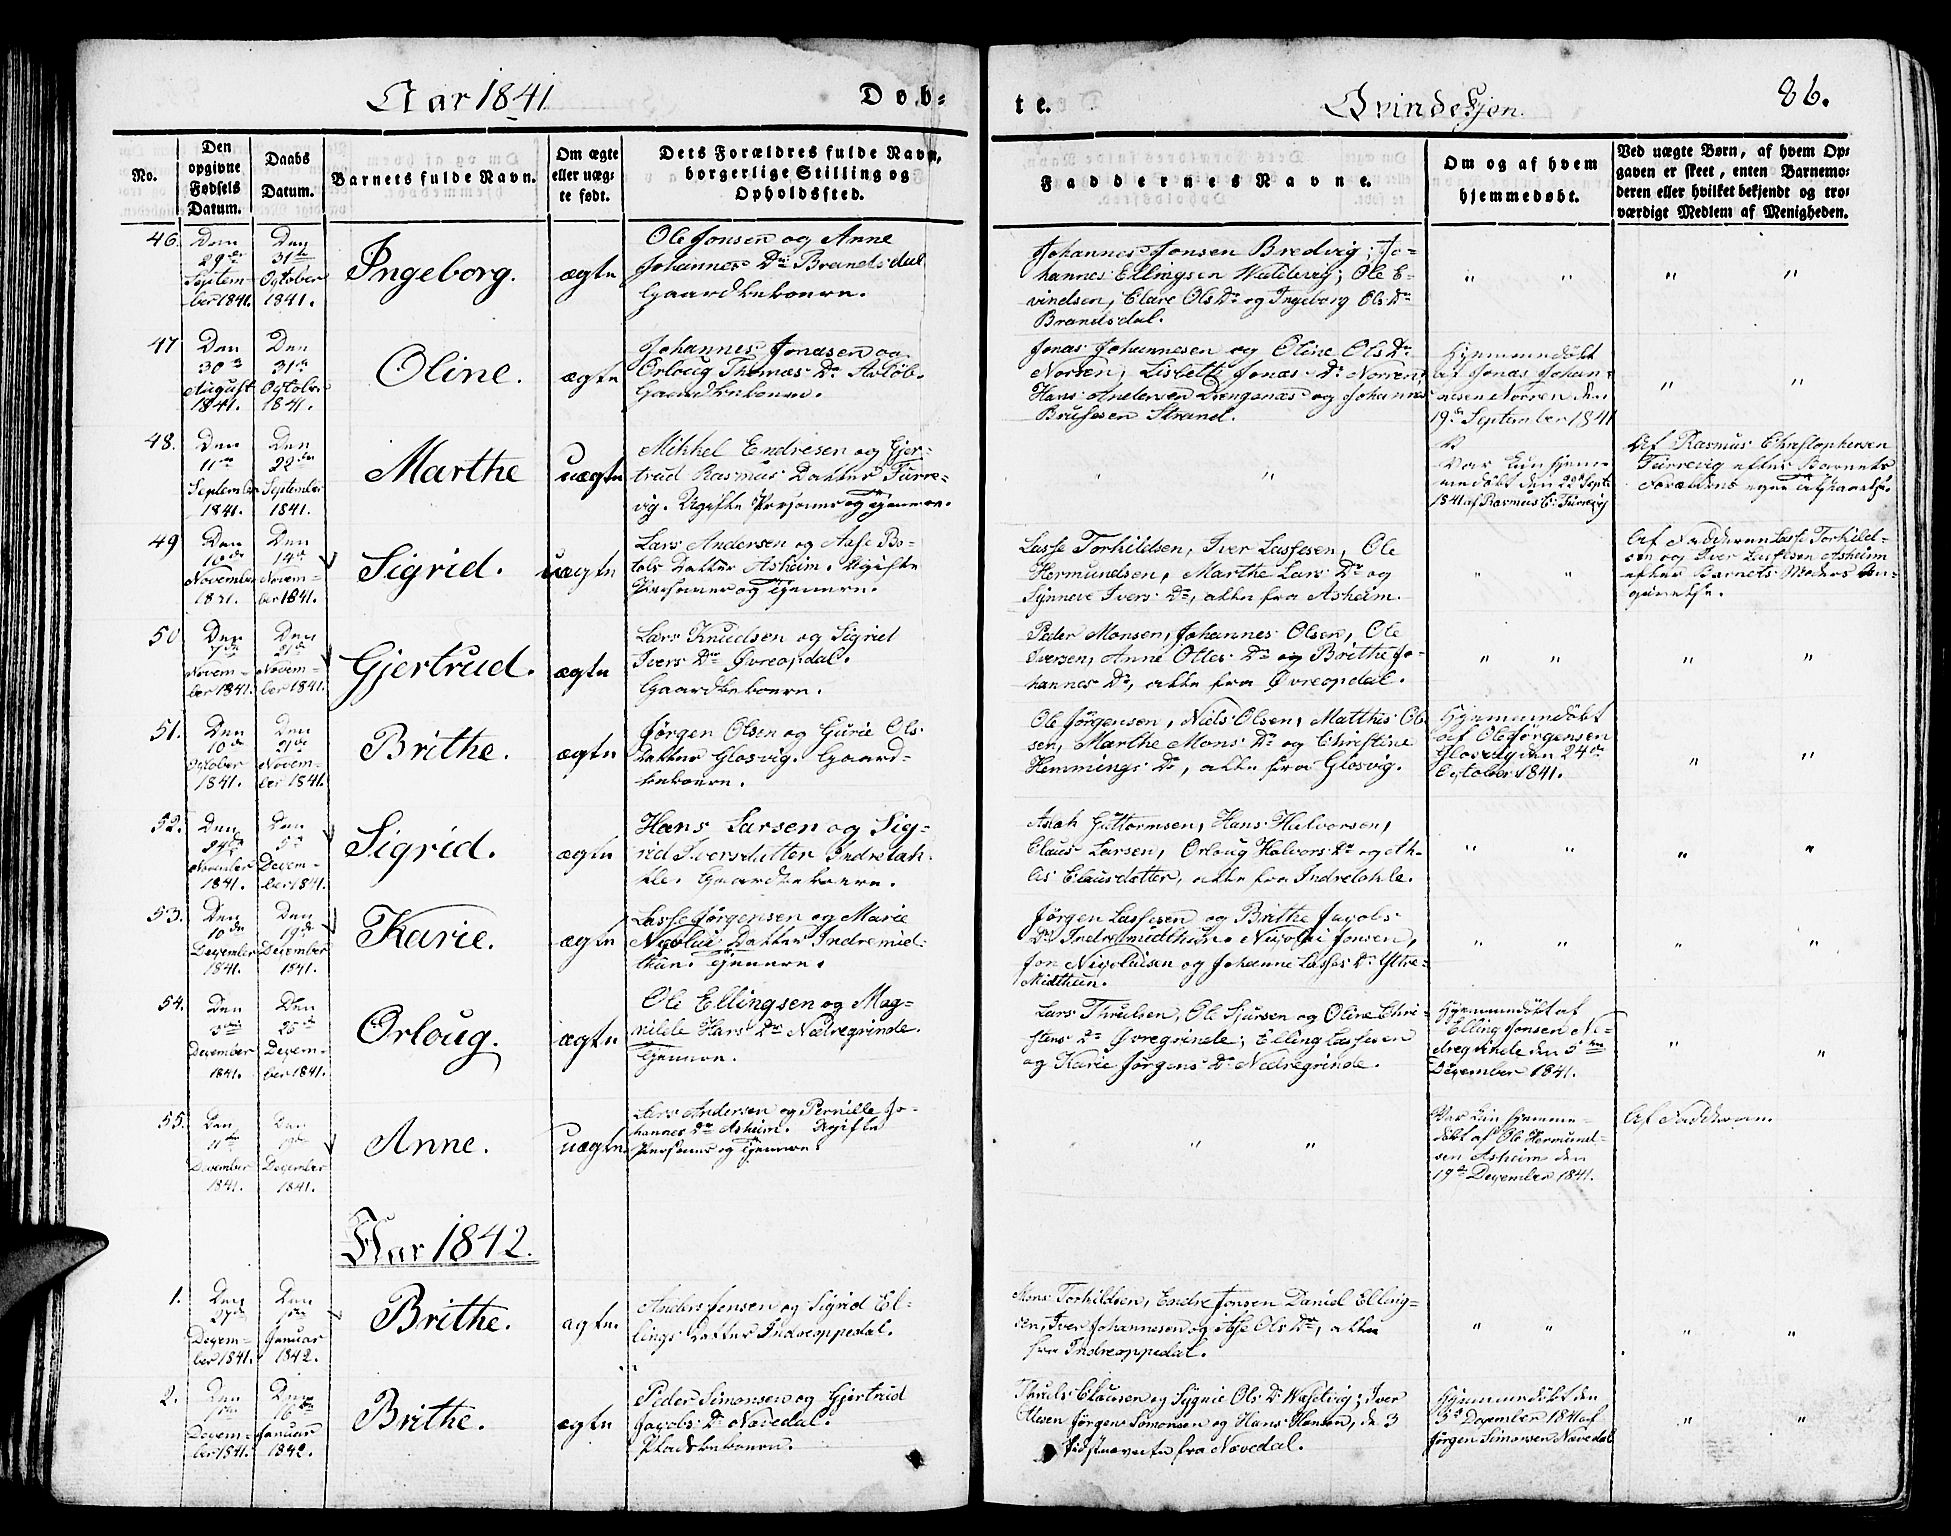 Aar 1841
Døb-
te.
Qvindekjøn.
86.
No.
Den
opgivne
Fødsels
Datum.
Daabs
Datum.
Barnets fulde Navn.
Om ægte
eller uæg-
te født.
Dets Forældres fulde Navn,
borgerlige Stilling og
Opholdssted.
Faddernes Navne.
Om og af hvem
hjemmedøbt.
Ved uægte Børn, af hvem Op-
gaven er skeet, enten Barnemo-
deren eller hvilket bekjendt og tro-
værdigt Medlem af Menigheden.
46.
Den
29de
Septem-
ber 1841.
Den
31te
October
1841.
Ingeborg.
ægte
Ole Jonsen og Anne
Johannes Dr Brandsdal
Gaardbeboere.
Johannes Jonsen Bredvig; Jo-
hannes Ellingsen Wadevig; Ole E-
vindsen, Ols Dr og Ingeborg Ols Dr
Brandsdal.
" " " "
47
Den
30te
August
1841.
Den
31te
October
1841.
Oline.
ægte
Johannes Jonasen og
Orloug Thomas Dr
Gaardbeboere.
Jonas Johannesen og Oline Ols Dr
Norren, Lisbette Jonas Dr Norren,
Hans Andersen og Johannes
Strand.
Hjemmedøbt
af Jonas Johan-
nesen Norren den
19de September 1841
" "
48.
Den
11te
September
1841.
Den
22de
September
1841.
Marthe
uægte
Mikkel Endresen og Gjer-
trud Rasmus Datter Furre-
vig. Ugifte Personer og tjenere.
" "
Var kun hjem-
medøbt den 22de Septr
1841 af Rasmus C. Furrevig
Af Rasmus Christophersen
Furrevig efter Barnets
Forældres egen
49
Den
10de
November
1841.
Den
14de
Novem-
ber 1841.
Sigrid.
uægte
Lars Andersen og Aase Bo-
tols Datter Asheim. Ugifte
Personer og tjenere.
Lasse Torkildsen, Iver Lassesen, Ole
Hermundsen, Marthe Lars Dr og
Synneve Ivers Dr, alle fra Asheim.
" "
Af Fadderne Lasse Torkild-
sen og Iver Lassesen Asheim
efter Barnets Moders An-
givelse.
50
Den
7de
Novem-
ber 1841.
Den
21de
Novem-
ber 1841.
Gjertrud.
ægte
Lars Knudsen og Sigrid
Ivers Dr Øvreopdal.
Gaardbeboere.
Peder Monsen, Johannes Olsen, Ole
Iversen, Anne Ottes Dr og Brithe Jo-
hannes Dr, alle fra Øvreopdal.
" " " "
51.
Den
10de
October
1841.
Den
21de
Novem-
ber 1841.
Brithe.
ægte
Jørgen Olsen og Gurie Ols
Datter Glosvig. Gaard-
beboere.
Ole Jørgensen, Niels Olsen, Matthis Ol-
sen, Marthe Mons Dr og Christine
Hemmings Dr, alle fra Glosvig.
Hjemmedøbt
af Ole Jørgensen
Glosvig den 24de
October 1841.
" "
52.
Den
24de
November
1841.
Den
5te
Decem-
ber 1841.
Sigrid.
ægte
Hans Larsen og Sig-
rid Iversdatter Indretak-
le. Gaardbeboere.
Guttormsen, Hans Halvorsen,
Claus Larsen, Orloug Halvors Dr og
Clausdatter, alle fra Indretakle.
" " " "
53.
Den
10de
December
1841.
Den
19de
December
1841.
Karie.
ægte
Lasse Jørgensen og Marie
Nicolai Datter Indremid-
thun. tjenere.
Jørgen Lassesen og Brithe Jacobs
Dr Indremidthun. Nicolai Jonsen,
Jon Nicolaisen og Johanne Lasses Dr Ytre-
Midthun.
" " " "
54.
Den
December
1841.
Den
25de
Decem-
ber 1841.
Orloug.
ægte
Ole Ellingsen og Mag-
nilde Hans Dr Nedregrinde.
tjenere.
Lars Thrulsen, Ole Sjursen og Oline Chri-
stens Dr Øvregrinde; Elling Lassesen
og Karie Jørgens Dr Nedregrinde.
Hjemmedøbt af
Elling Jonsen Ne-
dregrinde den 5te
December 1841.
" "
55.
Den
December
1841.
Den
December
1841.
Anne.
uægte.
Lars Andersen og Pernille Jo-
hannes Dr Asheim. Ugifte
Personer og tjenere.
" "
Var kun hjemme-
døbt af Ole Hermund-
sen Asheim den
19de December 1841.
Af Fadderne.
Aar 1842.
1.
Den
27de
Decem-
ber 1841.
Den
Januar
1842.
Brithe.
ægte.
Anders Jonsen og Sigrid El-
lings Datter Indreoppedal.
Mons Torkildsen, Endre Jonsen Daniel Elling-
sen, Iver Johannesen og Aase Ols Dr, alle
fra Indreoppedal.
" " " "
2.
Den
Decem-
ber 1841.
Den
16de
Januar
1842.
Brithe.
ægte
Peder Simonsen og Gjertrud
Jacobs Dr Nævedal.
Pladsbeboere.
Thruls Clausen og Sygnie Ols Dr Wadevig; Iver
Olsen Jørgen Simonsen og Hans Hansen, de 3
sidstnævnte fra Nævedal.
Hjemmedøbt den
5te December 1841 af
Jørgen Simonsen Nævedal
" "